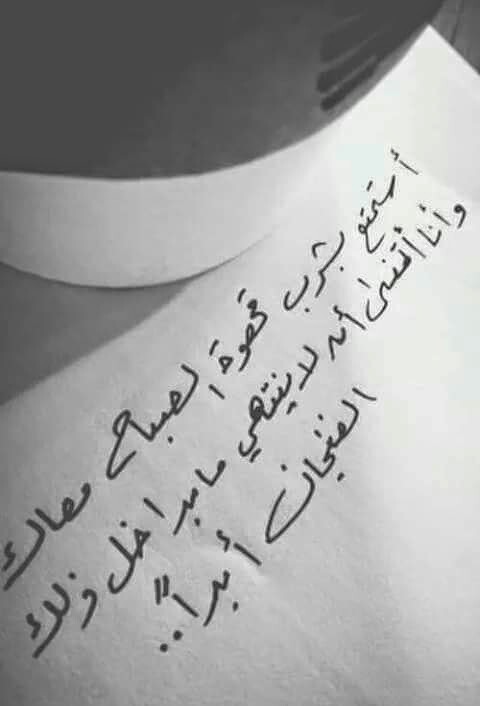 أستمتع بشرب قهوة الصباح معك
وأنا أتمنى أن لا ينتهي ما بداخل ذلك
الفنجان أبداً..